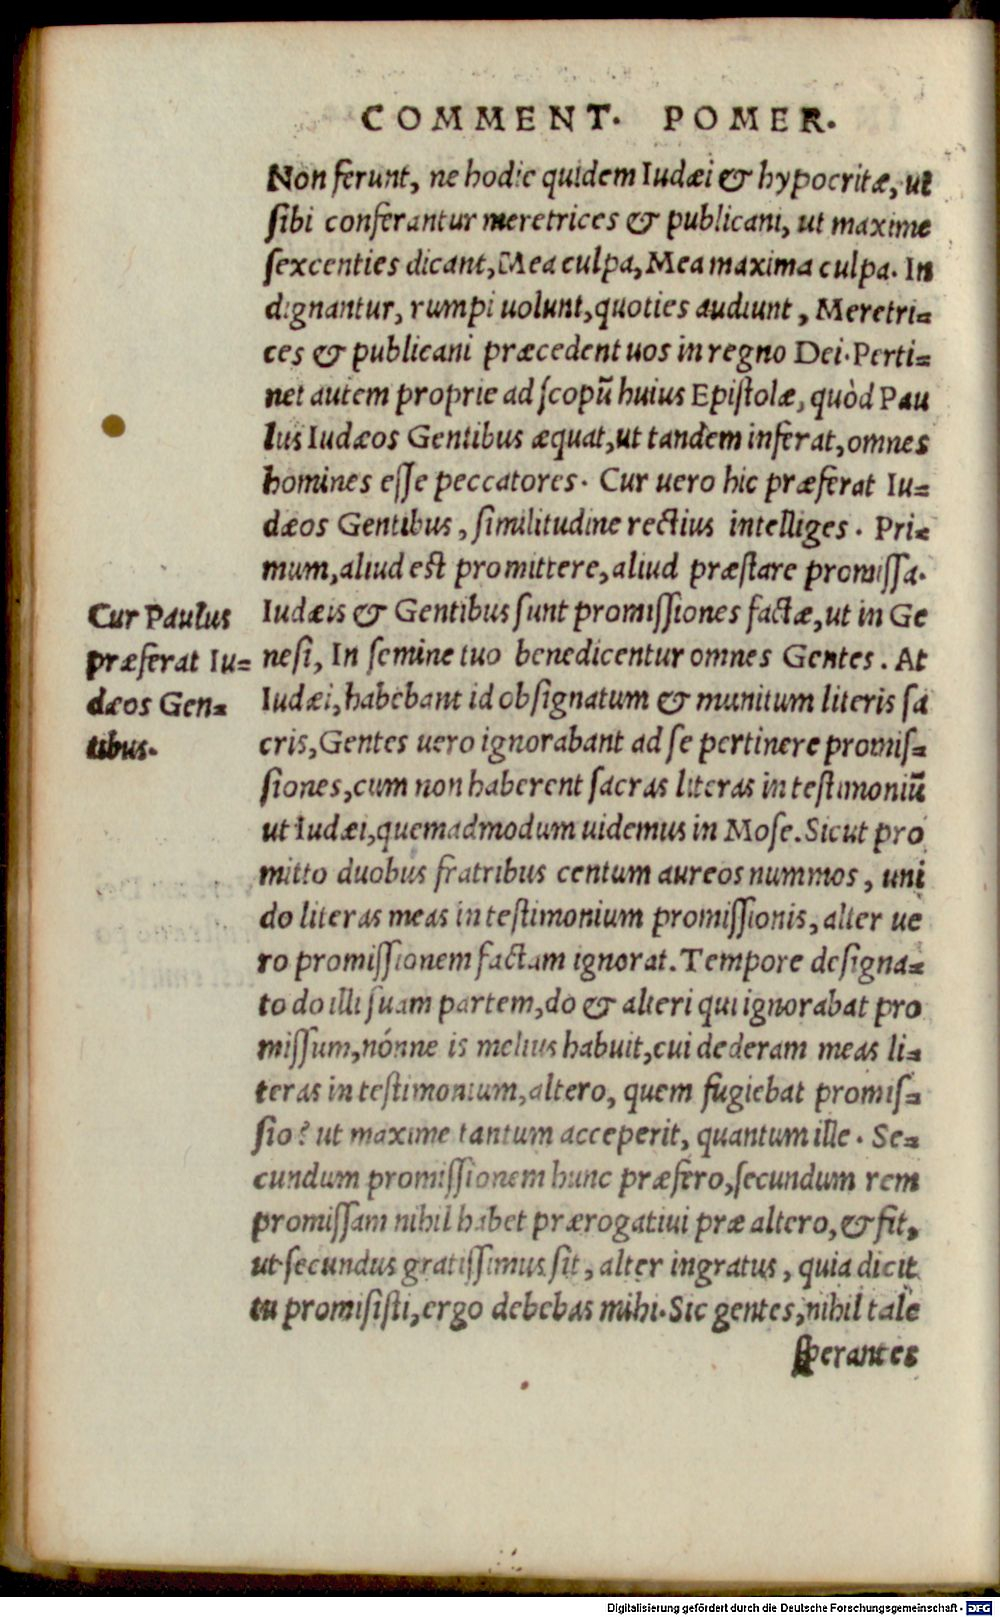 COMMENT. POMER.
Non ferunt, ne hodie quidem Iudæi & hypocritæ, ut
sibi conferantur meretrices & publicani, ut maxime
sexcenties dicant, Mea culpa, Mea maxima culpa. In
dignantur, rumpi uolunt, quoties audiunt, Meretri=
ces & publicani præcedent uos in regno Dei. Perti=
net autem proprie ad scopũ huius Epistolæ, quòd Pau
lus Iudæos Gentibus æquat, ut tandem inferat, omnes
homines esse peccatores. Cur uero hic præferat Iu=
dæos Gentibus, similitudine rectius intelliges. Pri=
mum, aliud est promittere, aliud præstare promissa.
Iudæis & Gentibus sunt promissiones factæ, ut in Ge
nesi, In semine tuo benedicentur omnes Gentes. At
Iudæi, habebant id obsignatum & munitum literis sa
cris, Gentes uero ignorabant ad se pertinere promis=
siones, cum non haberent sacras literas in testimoniũ
ut Iudæi, quemadmodum uidemus in Mose. Sicut pro
mitto duobus fratribus centum aureos nummos, uni
do literas meas in testimonium promissionis, alter ue
ro promissionem factam ignorat. Tempore designa=
to do illi suam partem, do & alteri qui ignorabat pro
missum, nónne is melius habuit, cui dederam meas li=
teras in testimonium, altero, quem fugiebat promis=
sio? ut maxime tantum acceperit, quantum ille. Se=
cundum promissionem hunc præfero, secundum rem
promissam nihil habet prærogatiui præ altero, & fit,
ut secundus gratissimus sit, alter ingratus, quia dicit
tu promisisti, ergo debebas mihi. Sic gentes, nihil tale
sperantes
Cur Paulus
præferat Iu=
dæos Gen=
tibus.
Digitalisierung gefördert durch die Deutsche Forschungsgemeinschaft - DFG